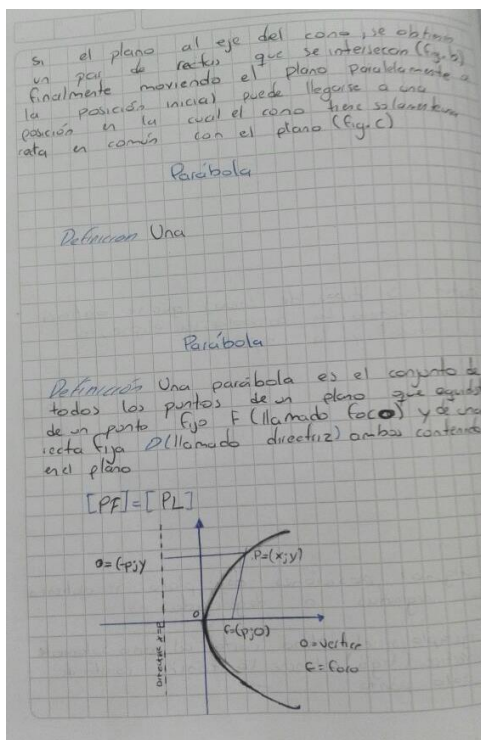 Si el plano al eje del cono, se obtine
un par de rectas que se intersecan (fig. b)
finalmente moviendo el plano paralelamente a
la posición inicial puede llegarse a una
posición en la cual el cono tiene solamente una
recta en común con el plano (fig. C)
Parábola
Definicion Una
Parábola
Definición Una parábola es el conjunto de
todos los puntos de un plano que equidis
de un punto fijo F (llamado foco) y de una
recta fija D (llamado directriz) ambos contenido
en el plano
[PF]=[PL]
D=(-p;y
P=(x;y)
0
F=(p;0)
0=vertice
F=foco
Directriz x=-p